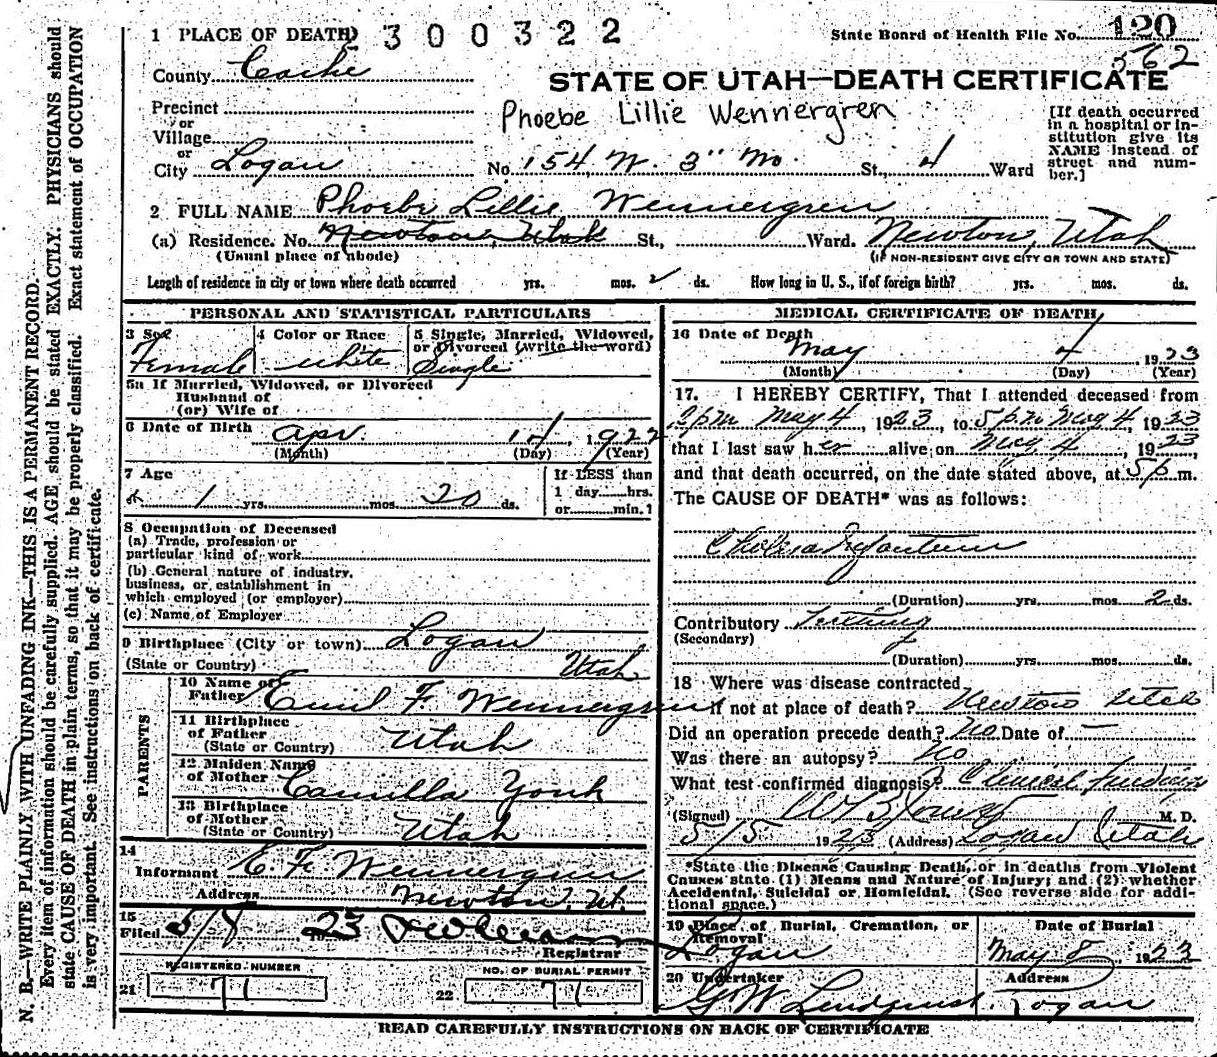 1 PLACE OF DEATH 300322
State Board of Health File No. 120
562
County Cache
STATE OF UTAH—DEATH CERTIFICATE
Precinct
Phoebe Lillie Wennergren
or
Village
or
City Logan No. 154 W. 3" No. St., 4 Ward
[If death occurred
in a hospital or in-
stitution give its
NAME instead of
street and num-
ber.]
2 FULL NAME Phoebe Lillie Wennergren
(a) Residence. No. Newton, Utah St., Ward. Newton, Utah
(Usual place of abode) (IF NON-RESIDENT GIVE CITY OR TOWN AND STATE)
Length of residence in city or town where death occurred yrs. mos. 2 ds. How long in U. S., if of foreign birth? yrs. mos. ds.
PERSONAL AND STATISTICAL PARTICULARS
3 Sex 4 Color or Race 5 Single, Married, Widowed,
or Divorced (write the word)
Female white Single
5a If Married, Widowed, or Divorced
Husband of
(or) Wife of
6 Date of Birth Apr. 14, 1922
(Month) (Day) (Year)
7 Age
1 yrs. mos. 20 ds.
If LESS than
1 day hrs.
or min.?
8 Occupation of Deceased
(a) Trade, profession or
particular kind of work
(b) General nature of industry,
business, or establishment in
which employed (or employer)
(c) Name of Employer
9 Birthplace (City or town) Logan
(State or Country) Utah
PARENTS
10 Name of
Father Emil F. Wennergren
11 Birthplace
of Father
(State or Country) Utah
12 Maiden Name
of Mother Camilla Yonk
13 Birthplace
of Mother
(State or Country) Utah
14
Informant E. F. Wennergren
Address Newton, Ut.
15
Filed 5/8, 1923
Registrar
REGISTERED NUMBER
21 71
NO. OF BURIAL PERMIT
22 71
MEDICAL CERTIFICATE OF DEATH
16 Date of Death
May 4, 1923
(Month) (Day) (Year)
17. I HEREBY CERTIFY, That I attended deceased from
2 pm May 4, 1923, to 5 p.m. May 4, 1923
that I last saw her alive on May 4, 1923,
and that death occurred, on the date stated above, at 5 p. m.
The CAUSE OF DEATH* was as follows:
Cholera Infantum
(Duration) yrs. mos. 2 ds.
Contributory Teething
(Secondary)
(Duration) yrs. mos. ds.
18 Where was disease contracted
if not at place of death? Newton Utah
Did an operation precede death? No Date of —
Was there an autopsy? No
What test confirmed diagnosis? Clinical
(Signed) M. D.
5/5 1923 (Address) Logan Utah
*State the Disease Causing Death, or in deaths from Violent
Causes state (1) Means and Nature of Injury; and (2) whether
Accidental, Suicidal or Homicidal. (See reverse side for addi-
tional space.)
19 Place of Burial, Cremation, or
Removal
Logan
Date of Burial
May 8, 1923
20 Undertaker
G. W. Lindquist
Address
Logan
READ CAREFULLY INSTRUCTIONS ON BACK OF CERTIFICATE
N. B.—WRITE PLAINLY WITH UNFADING INK—THIS IS A PERMANENT RECORD.
Every item of information should be carefully supplied. AGE should be stated EXACTLY. PHYSICIANS should
state CAUSE OF DEATH in plain terms, so that it may be properly classified. Exact statement of OCCUPATION
is very important. See instructions on back of certificate.